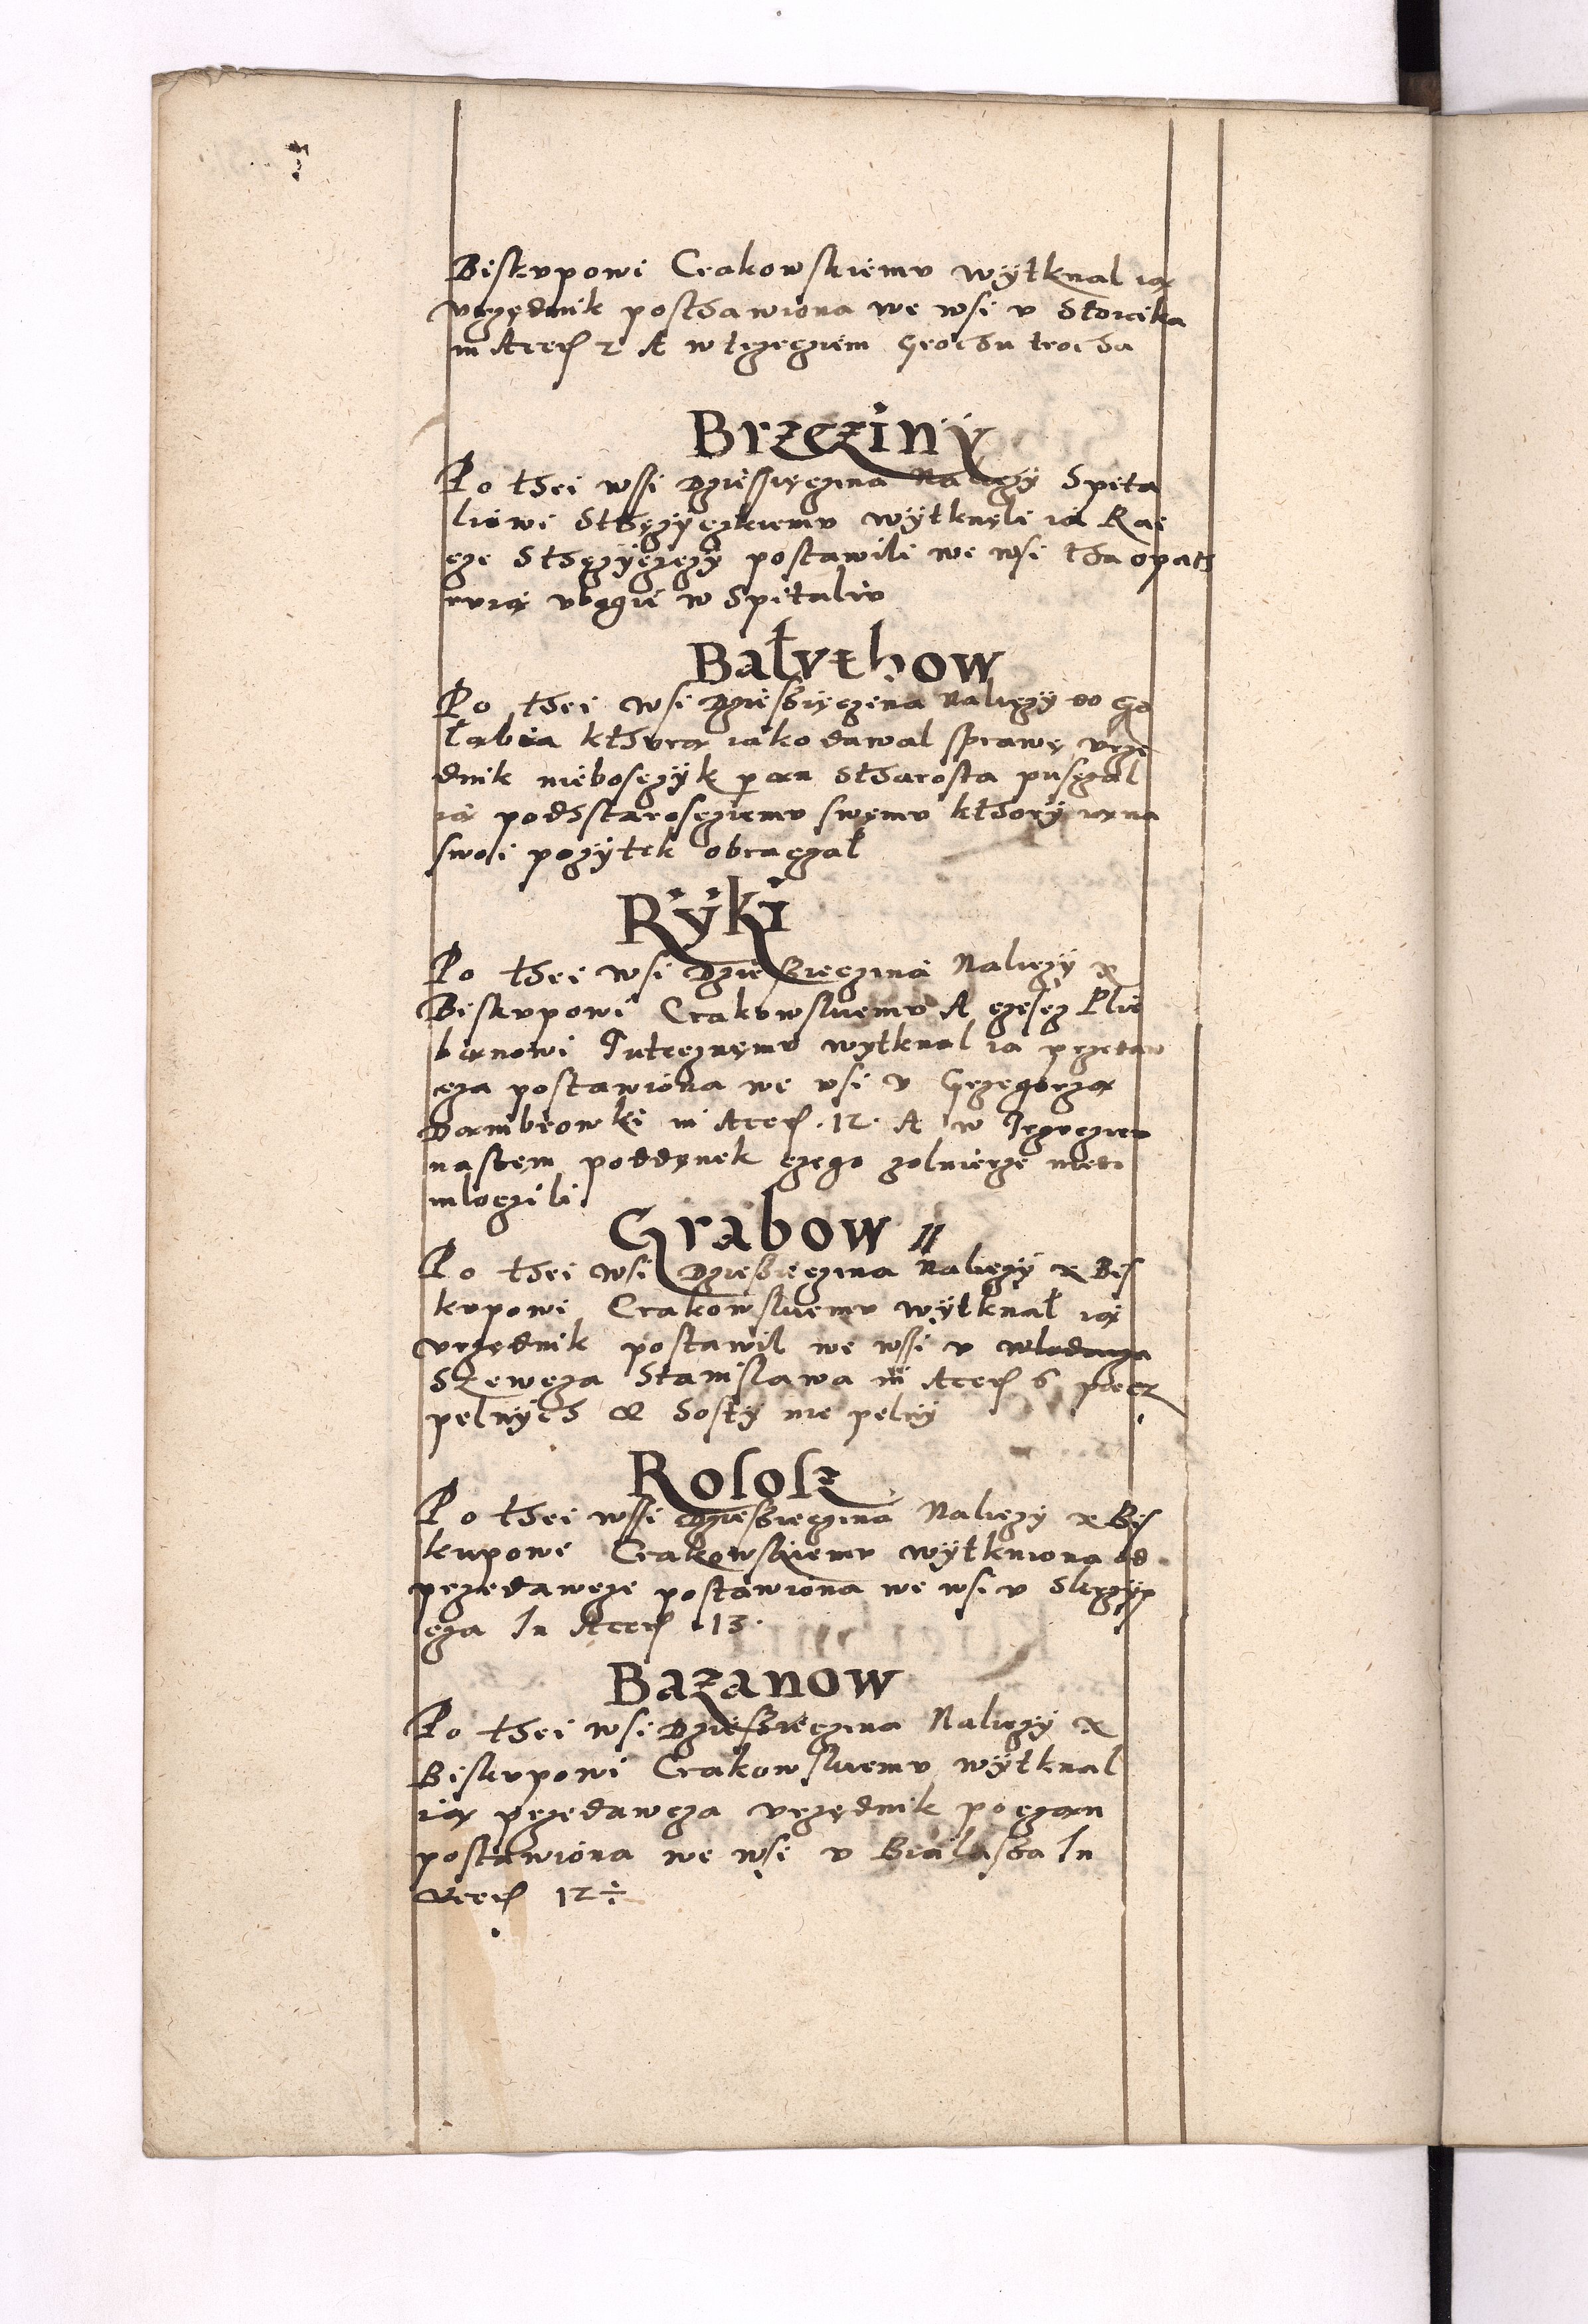 Biskupowi Crakowskiemu wÿtknal ią
vrzędnik posthawiona we wsi v Stoicika
in Acer͡ 2 A w trzeczięm Grochu trocha
Brzeziny
Po thei wssi dziessięczina Należÿ Spita
liowi Sthęzÿczkiemu wÿtknęli ią Rai
cze Sthęzÿczczÿ postawili we wsi tha opath
ruią vbogie w Spitaliu
Bałuthow
Po thei wsi dziesięczina Należÿ do Go
łabia kthora iako dawal sprawę vrzę
dnik nieboszczÿk pan Stharosta pusczal
ią podstarosczięmu swęmu kthorÿ na
swoi pozÿtek obraczał
Rÿki
Po thei wsi dziesięczina Należÿ x
Biskupowi Crakowskiemu A czescz Plie
banowi Tuteczniemu wytknal ia przedaw
cza postawiona we wsi v Grzegorza
Dambrowki in Acer͡ 12 A w
nastem poddynek czego zolnierze
mloczili
Grabow
Po thei wsi dziesięczina Należÿ x Bis
kupowi Crakowskiemu wÿtknał ią
vrzędnik postawil we wssi v
Szewcza Stanislawa in Acer͡ 6 piecz
pelnÿch A Sostÿ nie pelnÿ
Rososz
Po thei wssi dziesięczina Należÿ x Bis
kupowi Crakowskiemu wÿtkniona od
przedawcze postawiona we wsi v Skrzÿp
cza In Acer͡ 13
Bazanow
Po thei wsi dziesięczina Należÿ x
Biskupowi Crakowskiemu wÿtknal
ią przedawcza vrzędnik poczan
postawiona we wsi v Bialasza In
Acer͡ 12